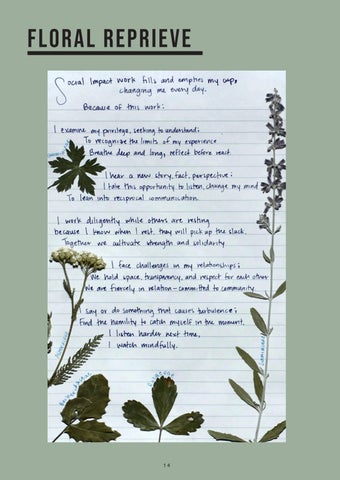 FLORAL REPRIEVE
Social Impact work fills and empties my cup,
changing me every day.
Because of this work:
I examine my privilege, seeking to understand;
To recognize the limits of my experience
Breathe deep and long, reflect before react.
I hear a new story, fact, perspective;
I take this opportunity to listen, change my mind
To lean into reciprocal communication.
I work diligently while others are resting
because I know when I rest, they will pick up the slack.
Together we cultivate strength and solidarity.
I face challenges in my relationships;
We hold space, transparency, and respect for each other
We are fiercely in relation - committed to community.
I say or do something that causes turbulence;
Find the humility to catch myself in the moment.
I listen harder next time,
I watch mindfully.
14